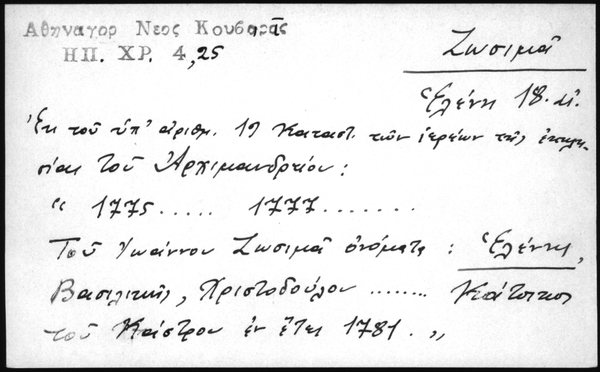 Αθηναγορ Νεος Κουβαρᾶς
ΗΠ. ΧΡ. 4,25
Ζωσιμᾶ
Ἑλένη 18. αἰ.
Ἐκ τοῦ ὑπ' ἀριθμ. 19 Καταστ. τῶν ἱερέων τῆς ἐκκλη-
σίας τοῦ Ἀρχιμανδρείου:
" 1775..... 1777.......
Τοῦ Ἰωάννου Ζωσιμᾶ ὀνόματα: Ἑλένης,
Βασιλικῆς, Χριστοδούλου ........ Κάτοικος
τοῦ Κάστρου ἐν ἔτει 1781. "